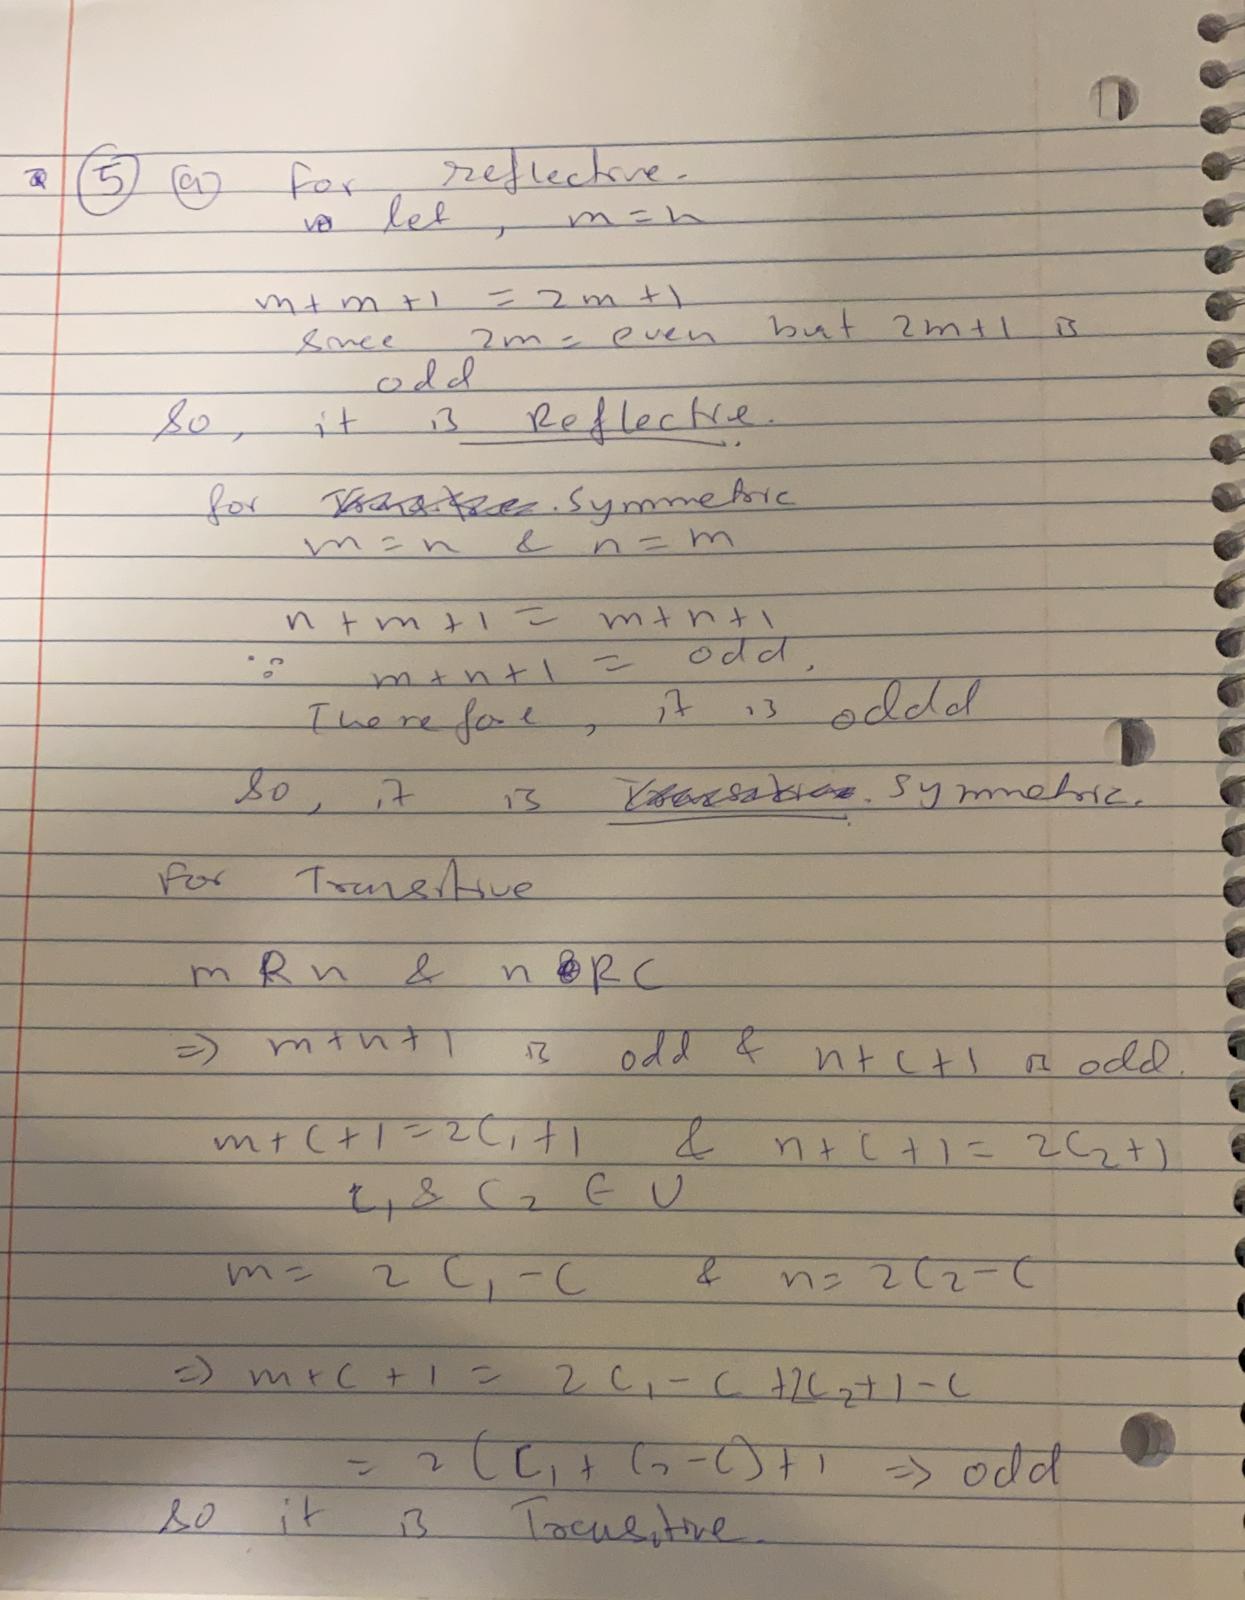 5 a For reflective.
let, m = n
m + m + 1 = 2m + 1
Since 2m = even but 2m+1 is
odd
So, it is Reflective.
for Symmetric
m = n & n = m
n + m + 1 = m + n + 1
∵ m + n + 1 = odd,
Therefore, it is oddd
So, it is Symmetric.
For Transitive
m R n & n R C
⇒ m+n+1 is odd & n+c+1 is odd.
m+c+1 = 2C₁+1 & n+c+1 = 2C₂+1
C₁ & C₂ ∈ U
m = 2C₁-C & n = 2C₂-C
⇒ m+c+1 = 2C₁-C+2C₂+1-C
= 2(C₁+C₂-C)+1 ⇒ odd
So it is Transitive.